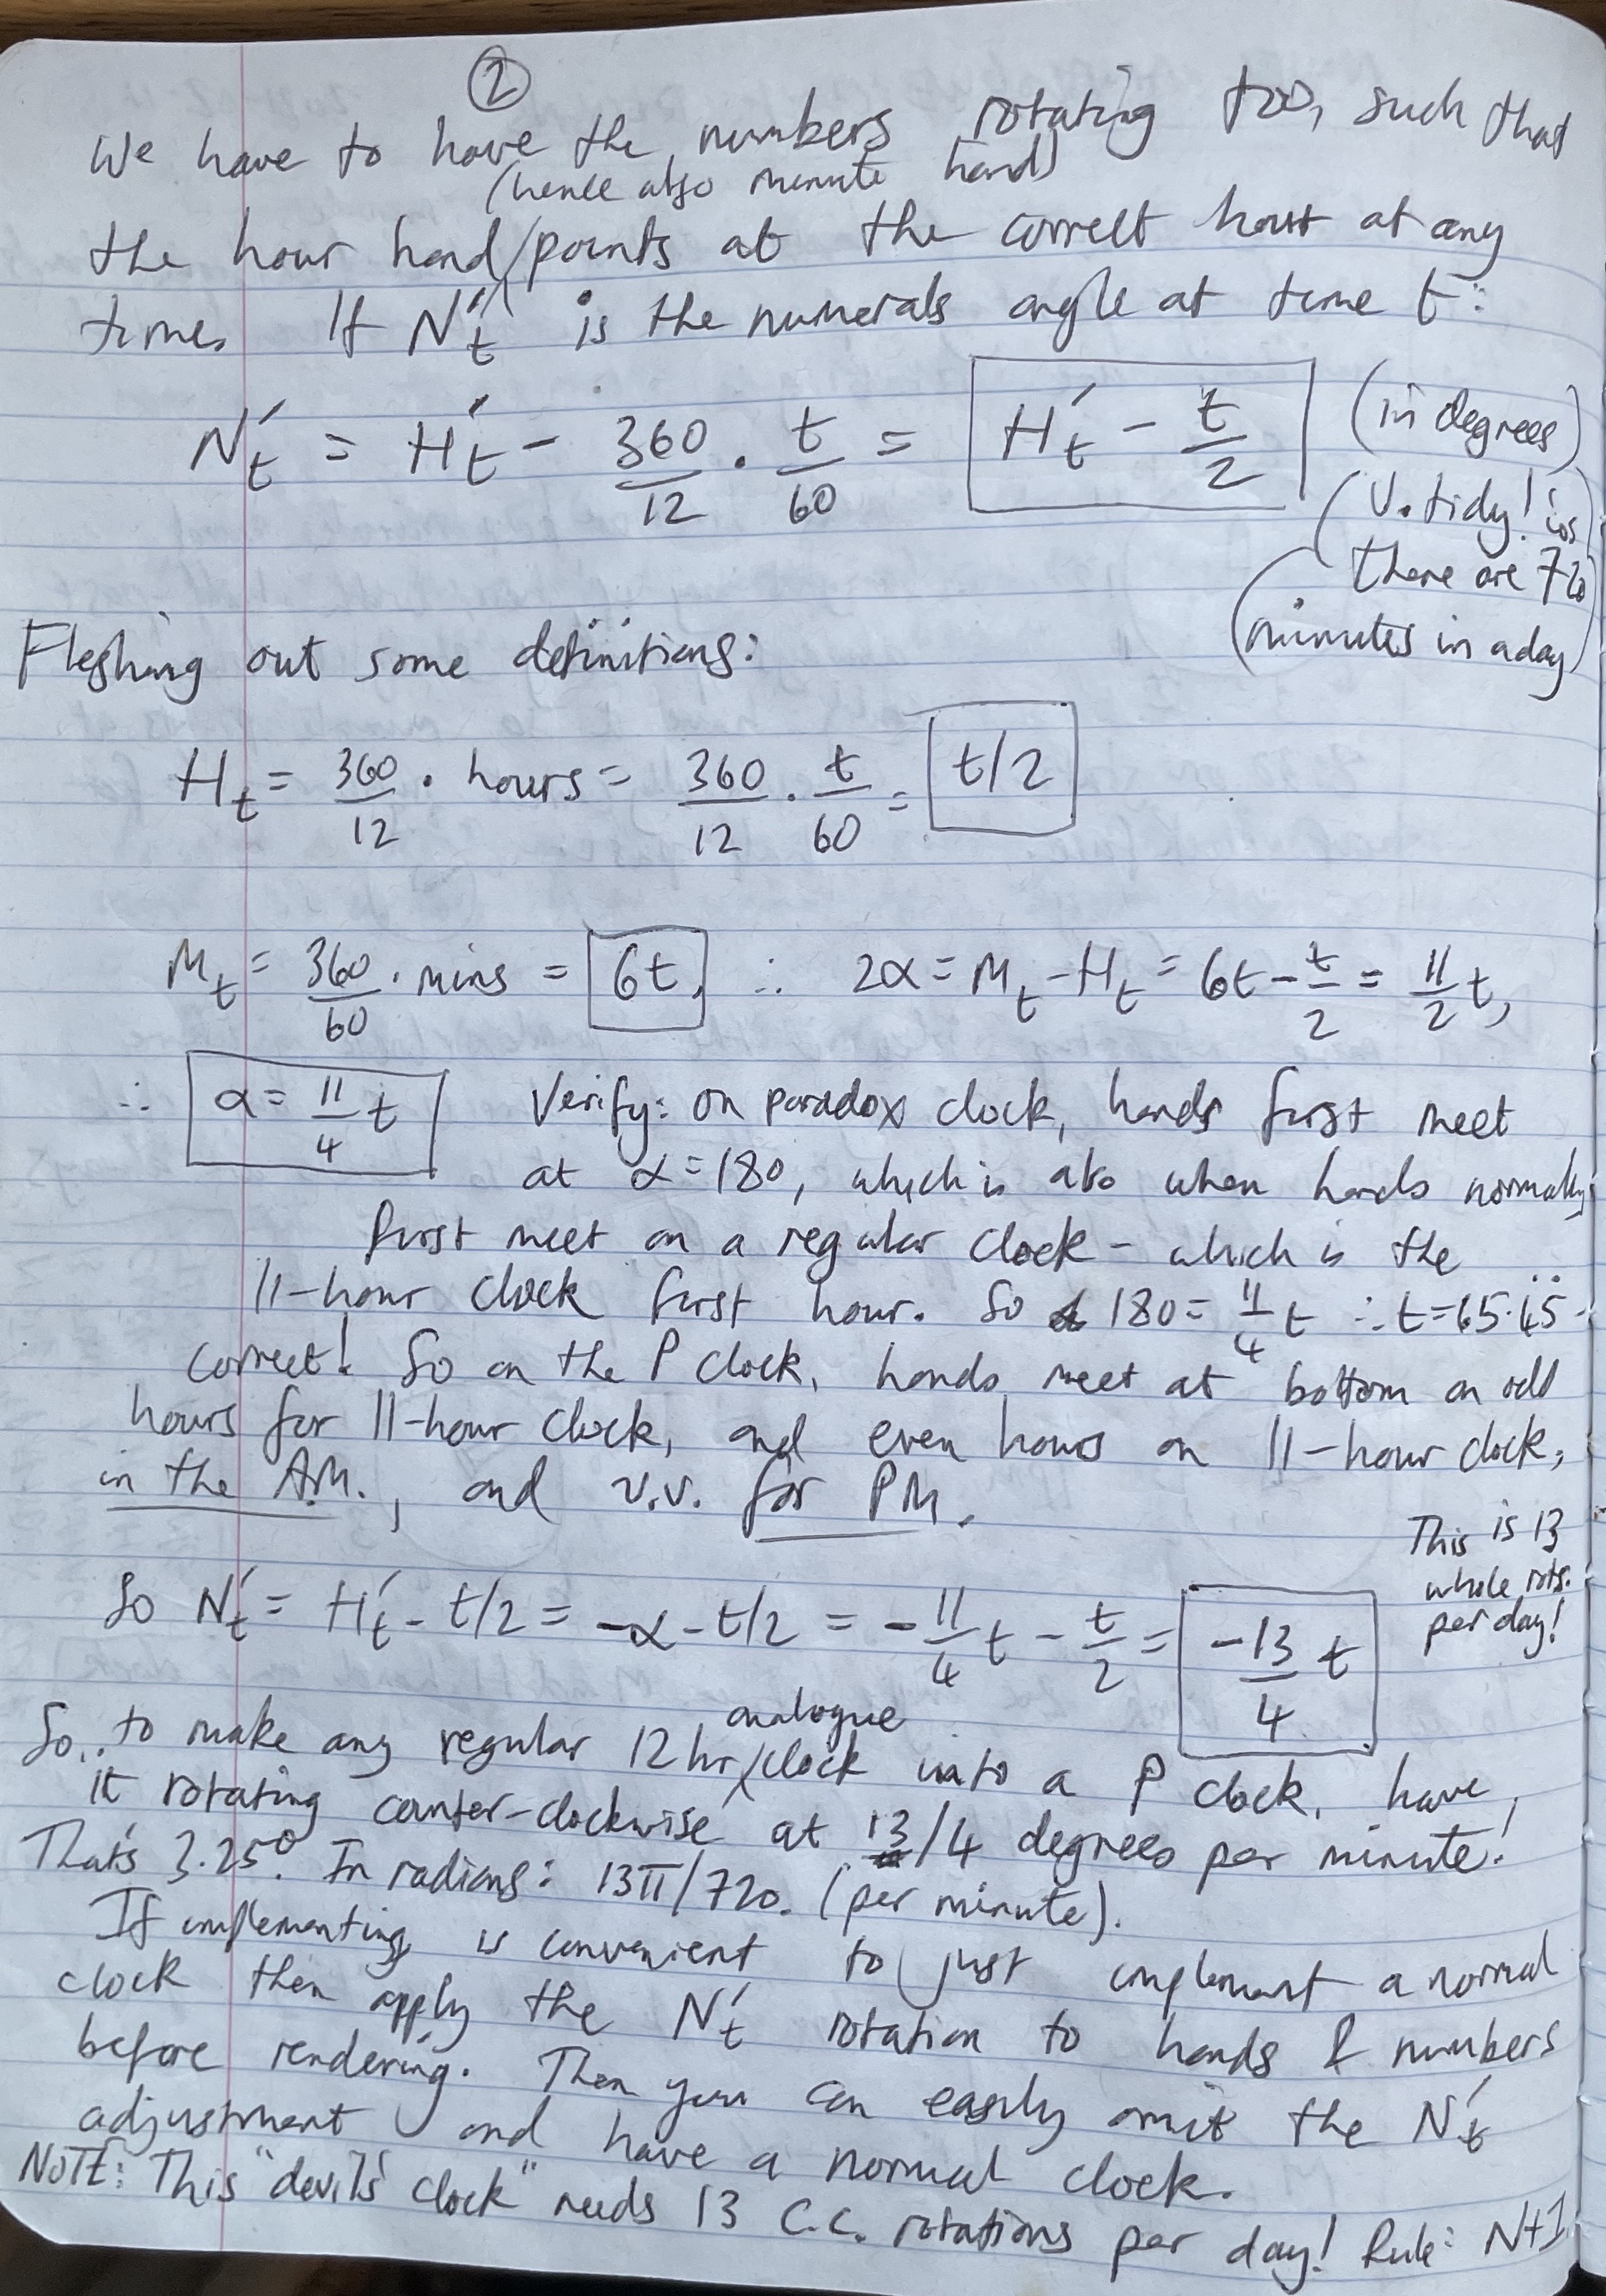 ②
We have to have the numbers rotating too, such that
(hence also minute hand)
the hour hand/points at the correct hour at any
time. If N't is the numerals angle at time t:
N't = H't - 360/12 . t/60 = H't - t/2 (in degrees)
(V. tidy! cos
there are 720
minutes in a day)
Fleshing out some definitions:
Ht = 360/12 . hours = 360/12 . t/60 = t/2
Mt = 360/60 . mins = 6t, ∴ 2α = Mt - Ht = 6t - t/2 = 11/2 t,
∴ α = 11/4 t Verify: on paradox clock, hands first meet
at α = 180, which is also when hands normally
first meet on a regular clock - which is the
11-hour clock first hour. So 180 = 11/4 t ∴ t = 65.4̇5̇ -
correct! So on the P clock, hands meet at bottom on odd
hours for 11-hour clock, and even hours on 11-hour clock,
in the A.M., and v.v. for PM.
This is 13
whole rots.
per day!
So N't = H't - t/2 = -α - t/2 = -11/4 t - t/2 = -13/4 t
analogue
So.. to make any regular 12 hr/clock into a P clock, have
it rotating counter-clockwise at 13/4 degrees per minute!
That's 3.25°. In radians: 13π/720. (per minute).
If implementing is convenient to just implement a normal
clock then apply the N't rotation to hands & numbers
before rendering. Then you can easily omit the N't
adjustment and have a normal clock.
NOTE: This "devil's clock" needs 13 C.C. rotations per day! Rule: N+1